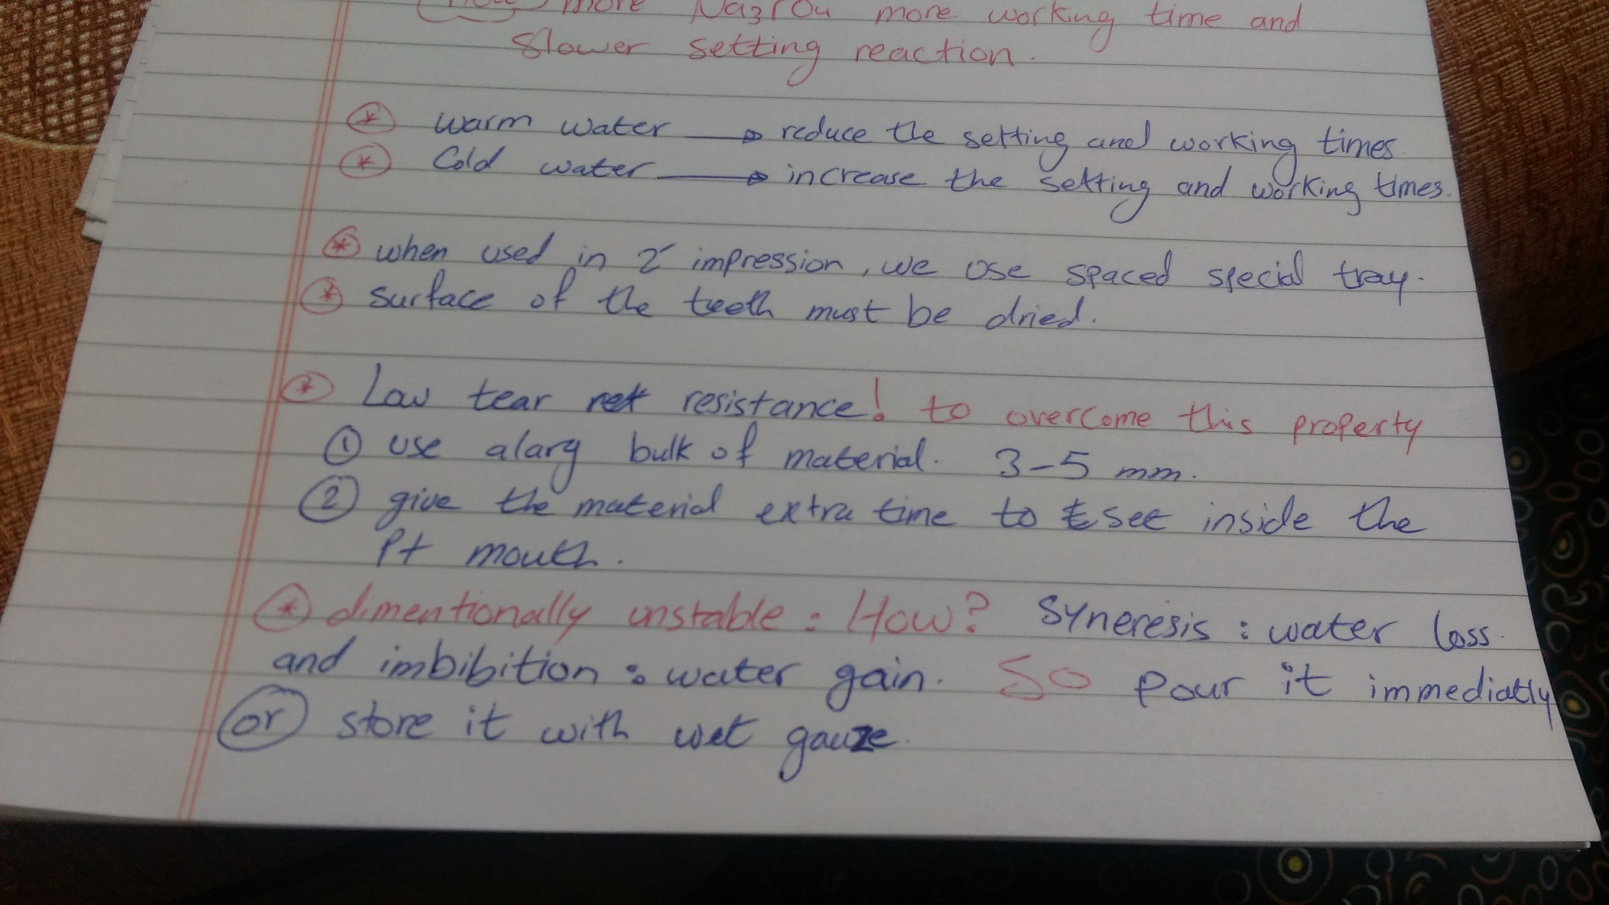 more Na3PO4 more working time and
slower setting reaction.
* warm water → reduce the setting and working times
* Cold water → increase the setting and working times.
* when used in 2' impression, we use spaced special tray.
* surface of the teeth must be dried.
* Low tear resistance! to overcome this property
① use alarg bulk of material. 3-5 mm.
② give the material extra time to set inside the
Pt mouth.
* dimentionally unstable: How? Syneresis: water loss.
and imbibition: water gain. So pour it immediatly
or store it with wet gauze.